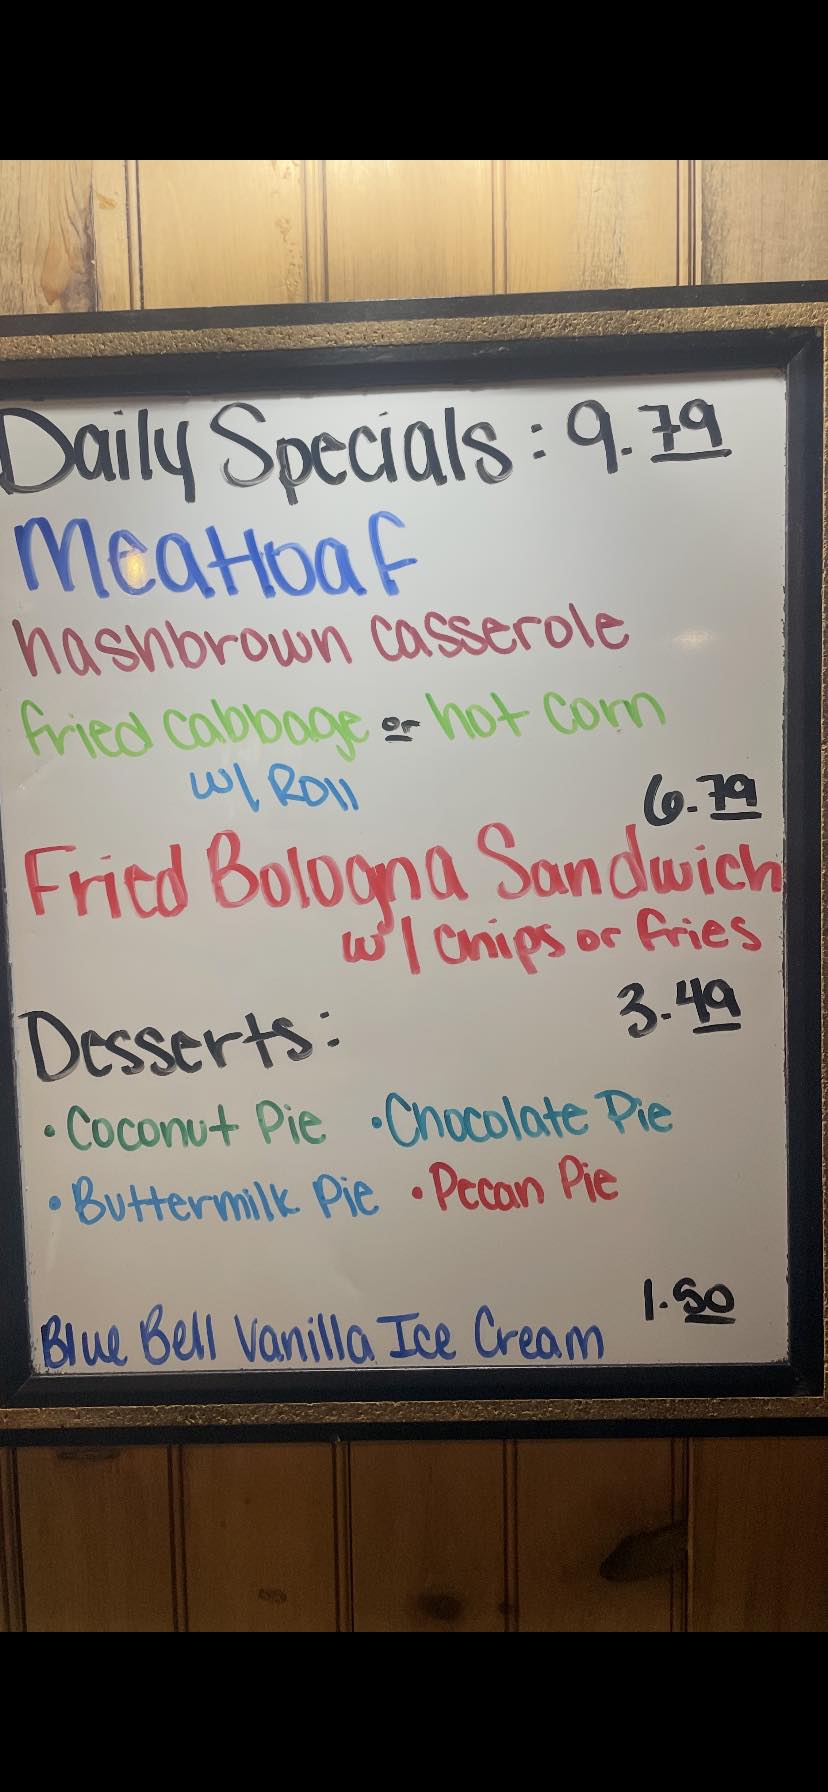 Daily Specials: 9.79
Meatloaf
hashbrown casserole
fried cabbage or hot corn
w/ Roll
6.79
Fried Bologna Sandwich
w/ chips or fries
Desserts: 3.49
• Coconut Pie • Chocolate Pie
• Buttermilk Pie • Pecan Pie
1.50
Blue Bell Vanilla Ice Cream